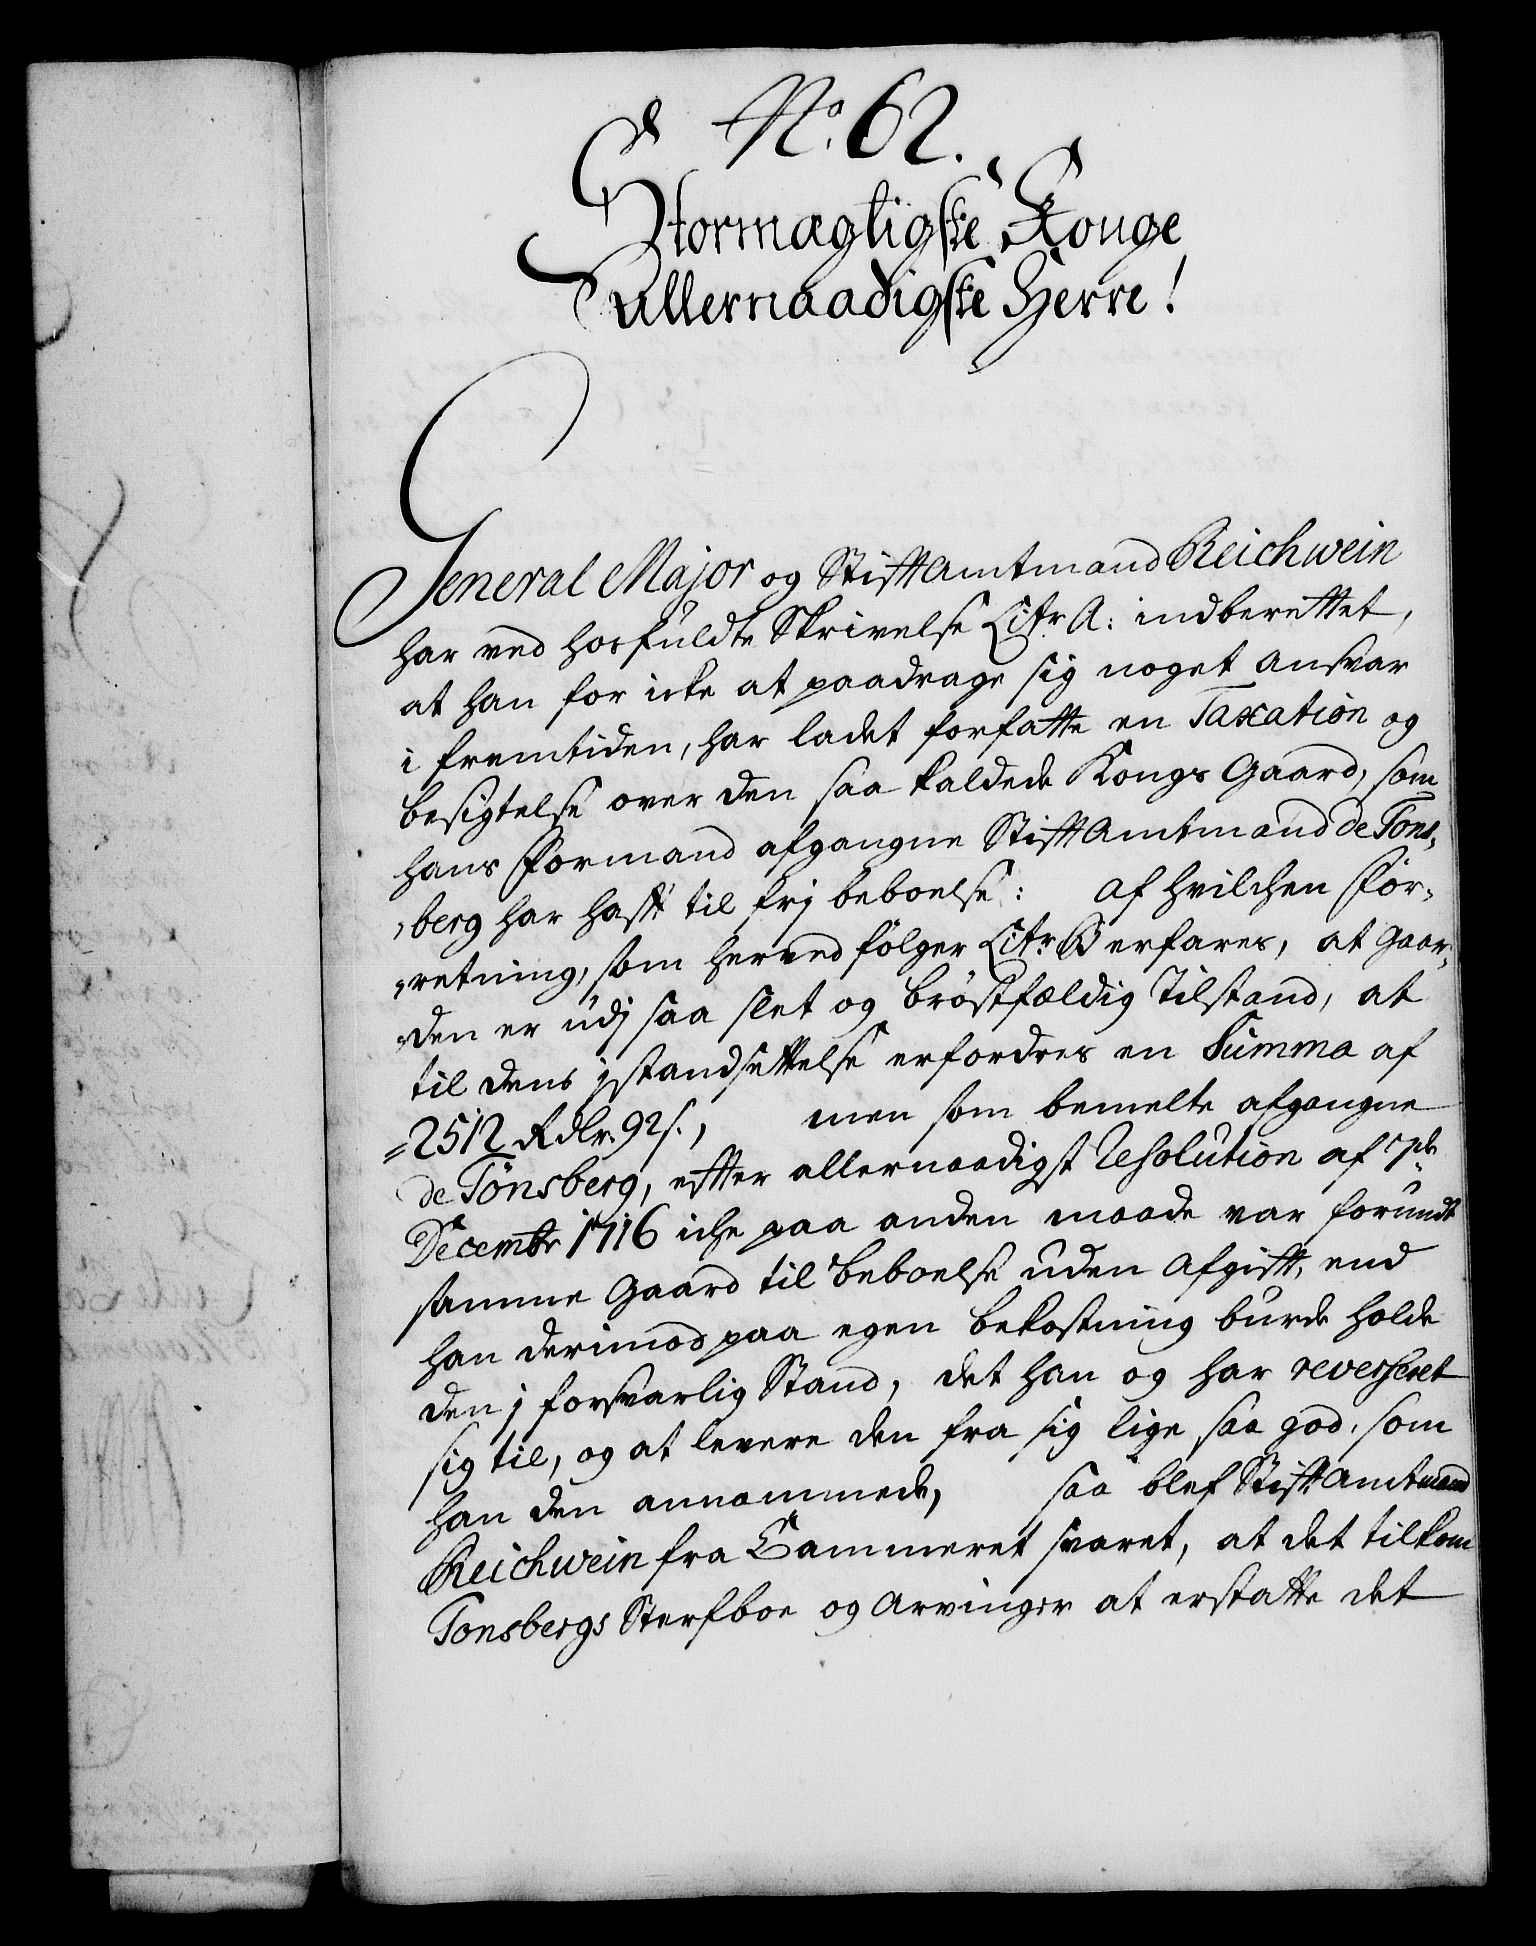 No. 62.
Stormægtigste Konge
Allernaadigste Herre!
General Major og Stiftamtmand Reichwein
har ved hosfuldte Skrivelse Litr. A: indberettet,
at han for icke at paadrage sig noget ansvar
i fremtiden, har ladet forfatte en Taxation og
besigtelse over den saa kaldede Kongs Gaard, som
hans Formand afgangne Stiftamtmand de Tøns,
,berg har hafft til frj beboelse: af hvilchen For,
,retning, som herved følger Litr. B erfares, at gaar,
,den er udj saa slet og brøstfældig Tilstand, at
til dens jstandsettelse erfordres en Summa af
=2512 Rdlr. 92 s., men som bemelte afgangne
de Tønsberg, efter allernaadigst Resolution af 7de
Decembr 1716 iche paa anden maade var forundt
samme Gaard til beboelse uden Afgift, end
han derimod paa egen bekostning burde holde
den j forsvarlig Stand, det han og har reverseret
sig til, og at levere den fra sig lige saa god, som
han den annammede, saa blef Stiftamtmand
Reichwein fra Cammeret svaret, at det tilkom
Tonsbergs Sterfboe og Arvinger at erstatte det